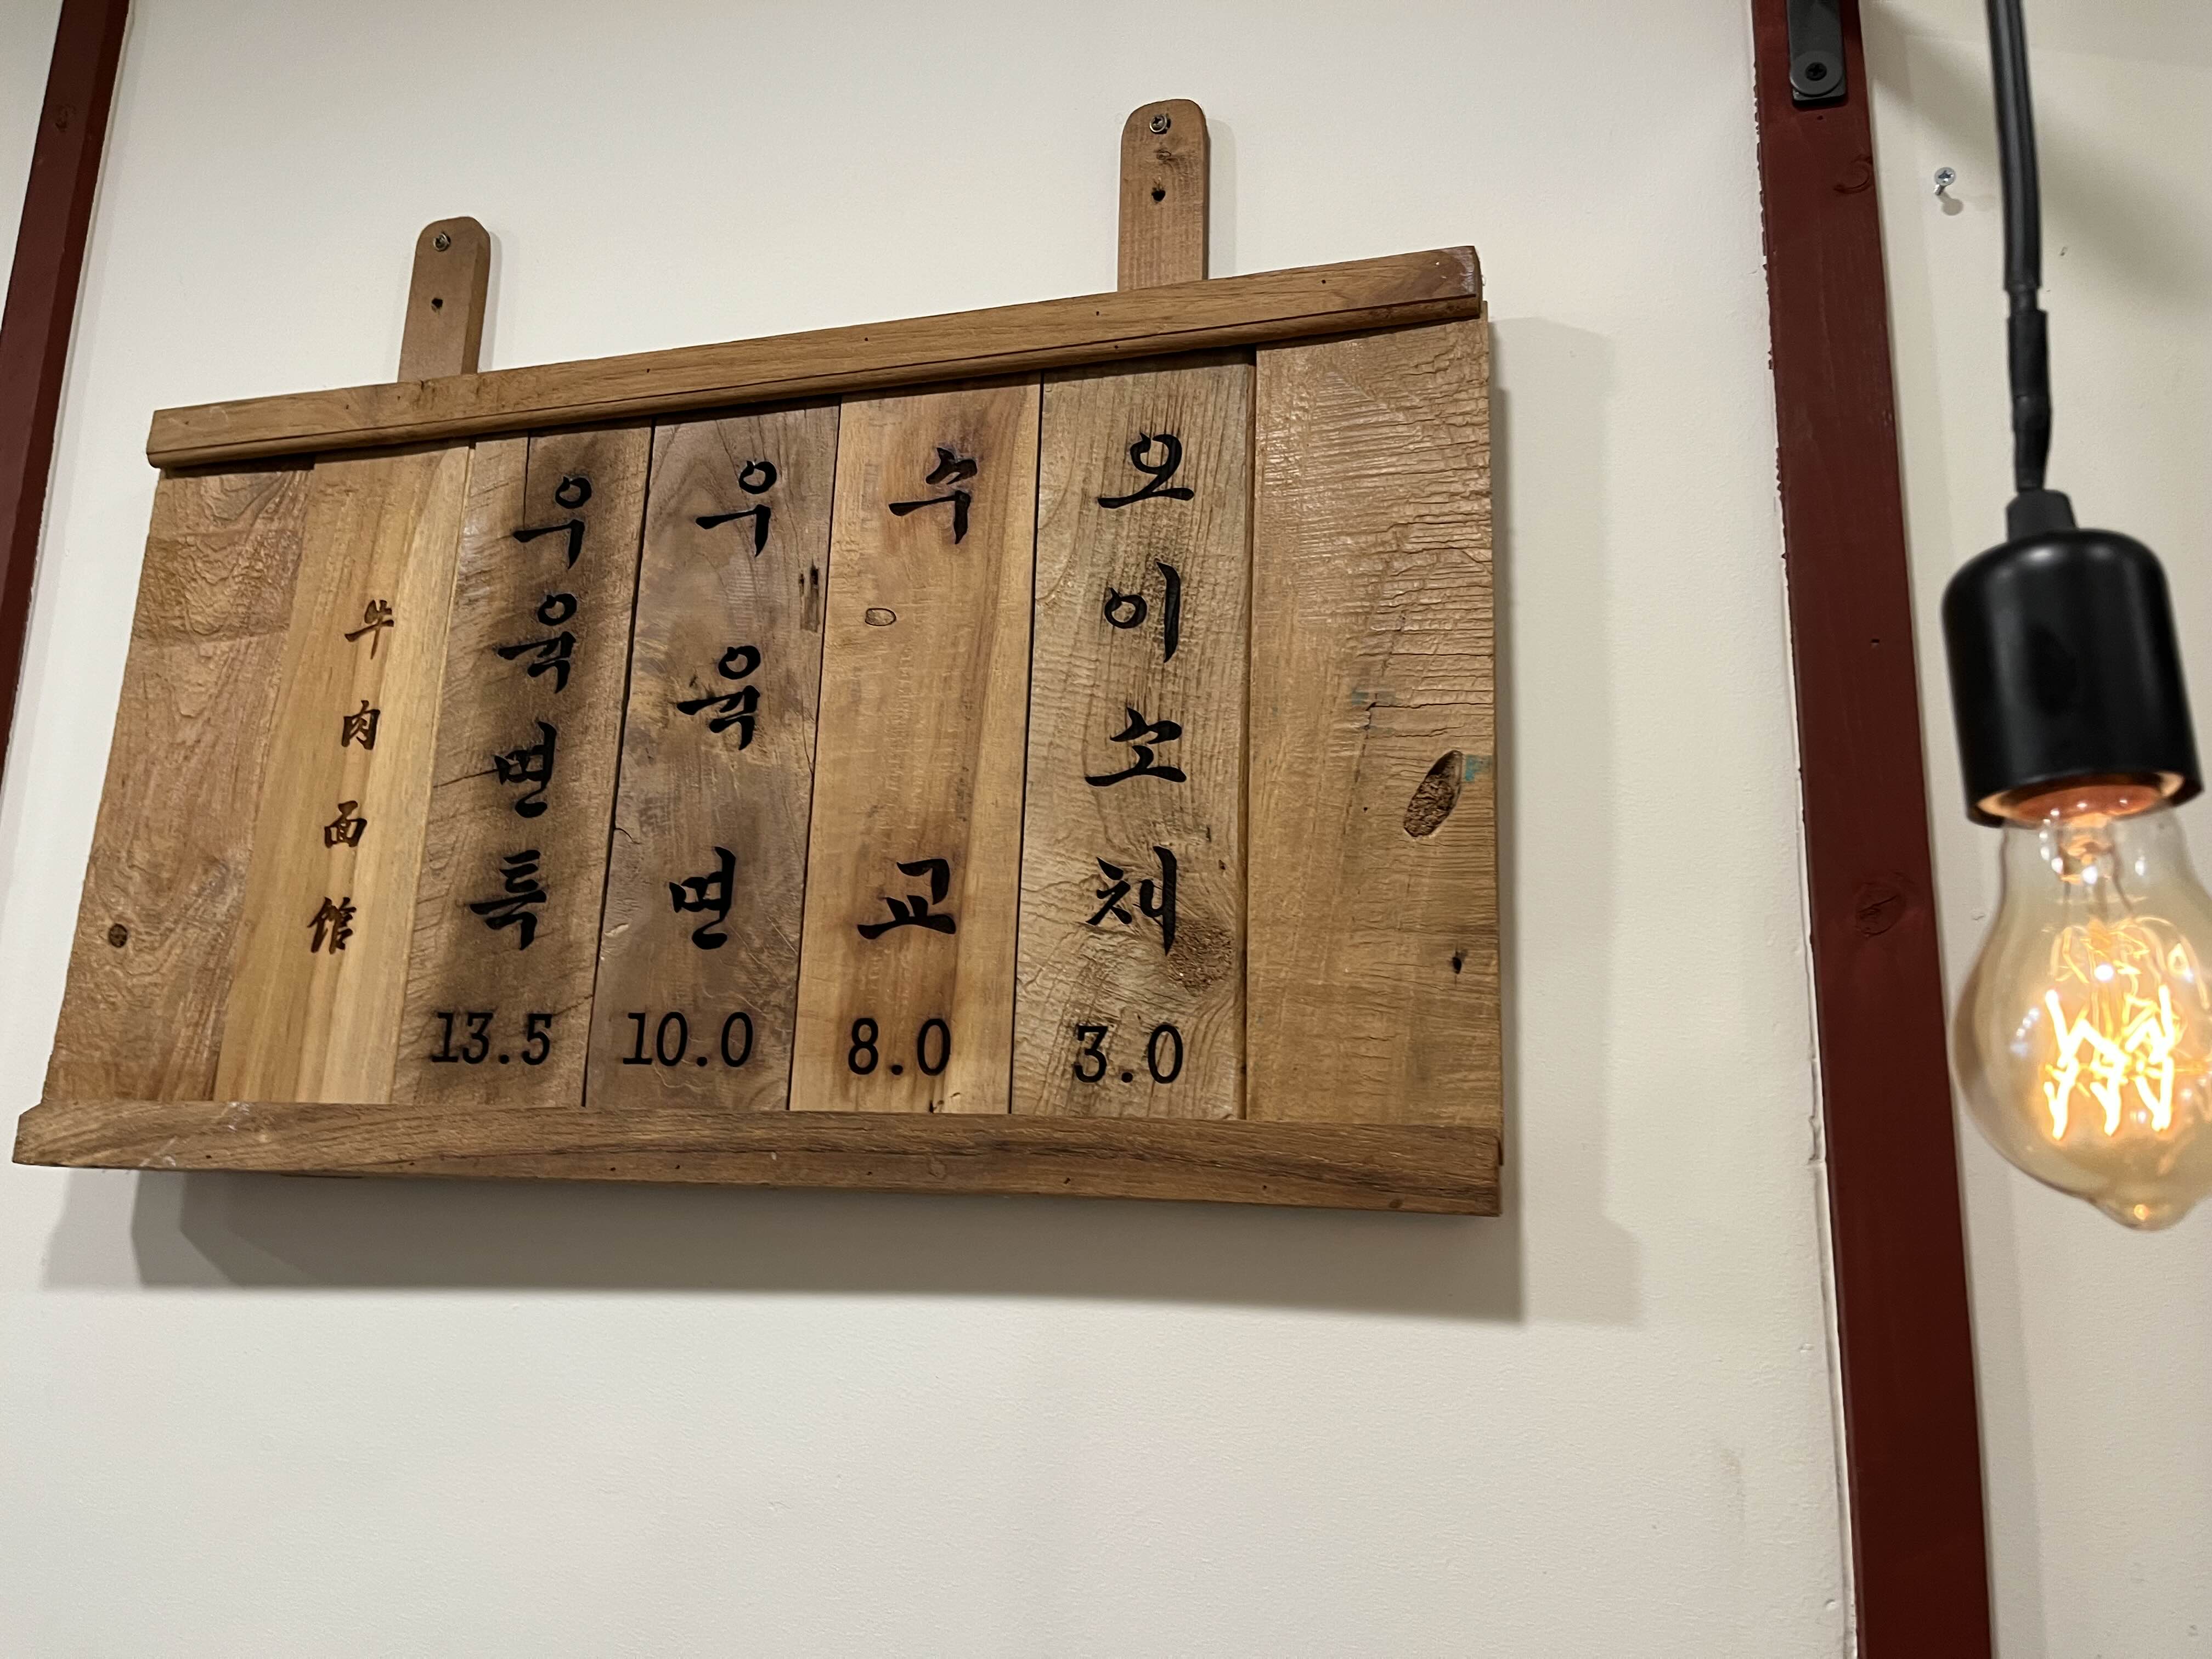 牛肉面馆
우육면특
13.5
우육면
10.0
수교
8.0
오이소채
3.0